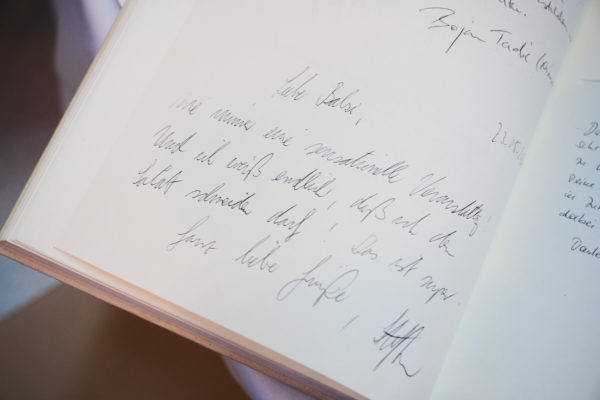 Bojan Tadić
Liebe Babsi,
wie immer eine sensationelle Veranstaltg.!
Und ich weiß endlich, daß ich den
Salat schneiden darf! Das ist super.
Ganz liebe Grüße,
Du
sehr
zu
Deine
in
dabei
Danke